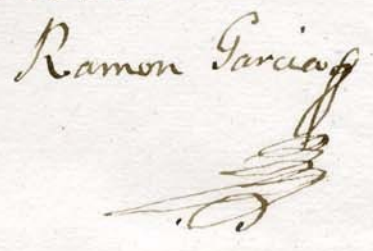 Ramon Garcia